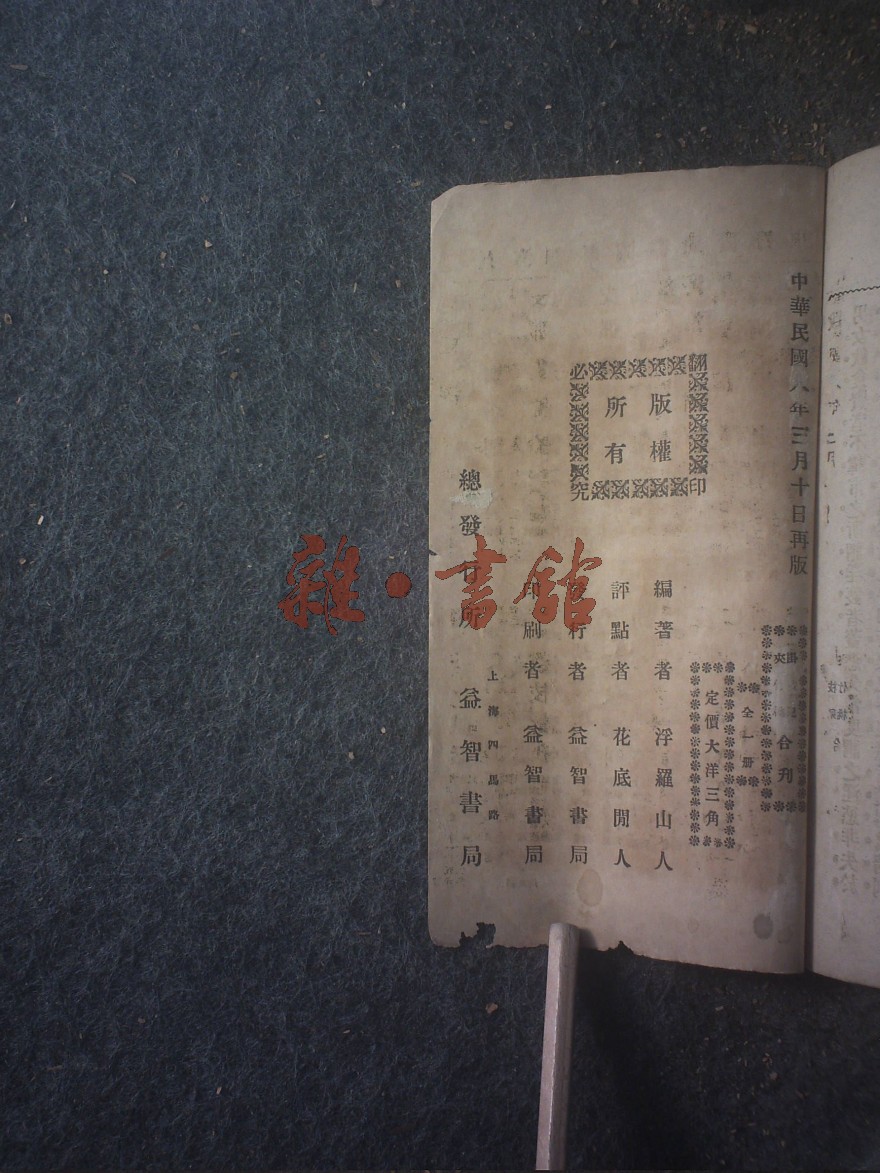 中華民國八年三月十日再版
合刊
全一冊
定價大洋三角
翻印
必究
版權
所有
編著者 浮羅山人
評點者 花底閒人
發行者 益智書局
印刷者 益智書局
上海四馬路
總發行所 益智書局
雜·書館